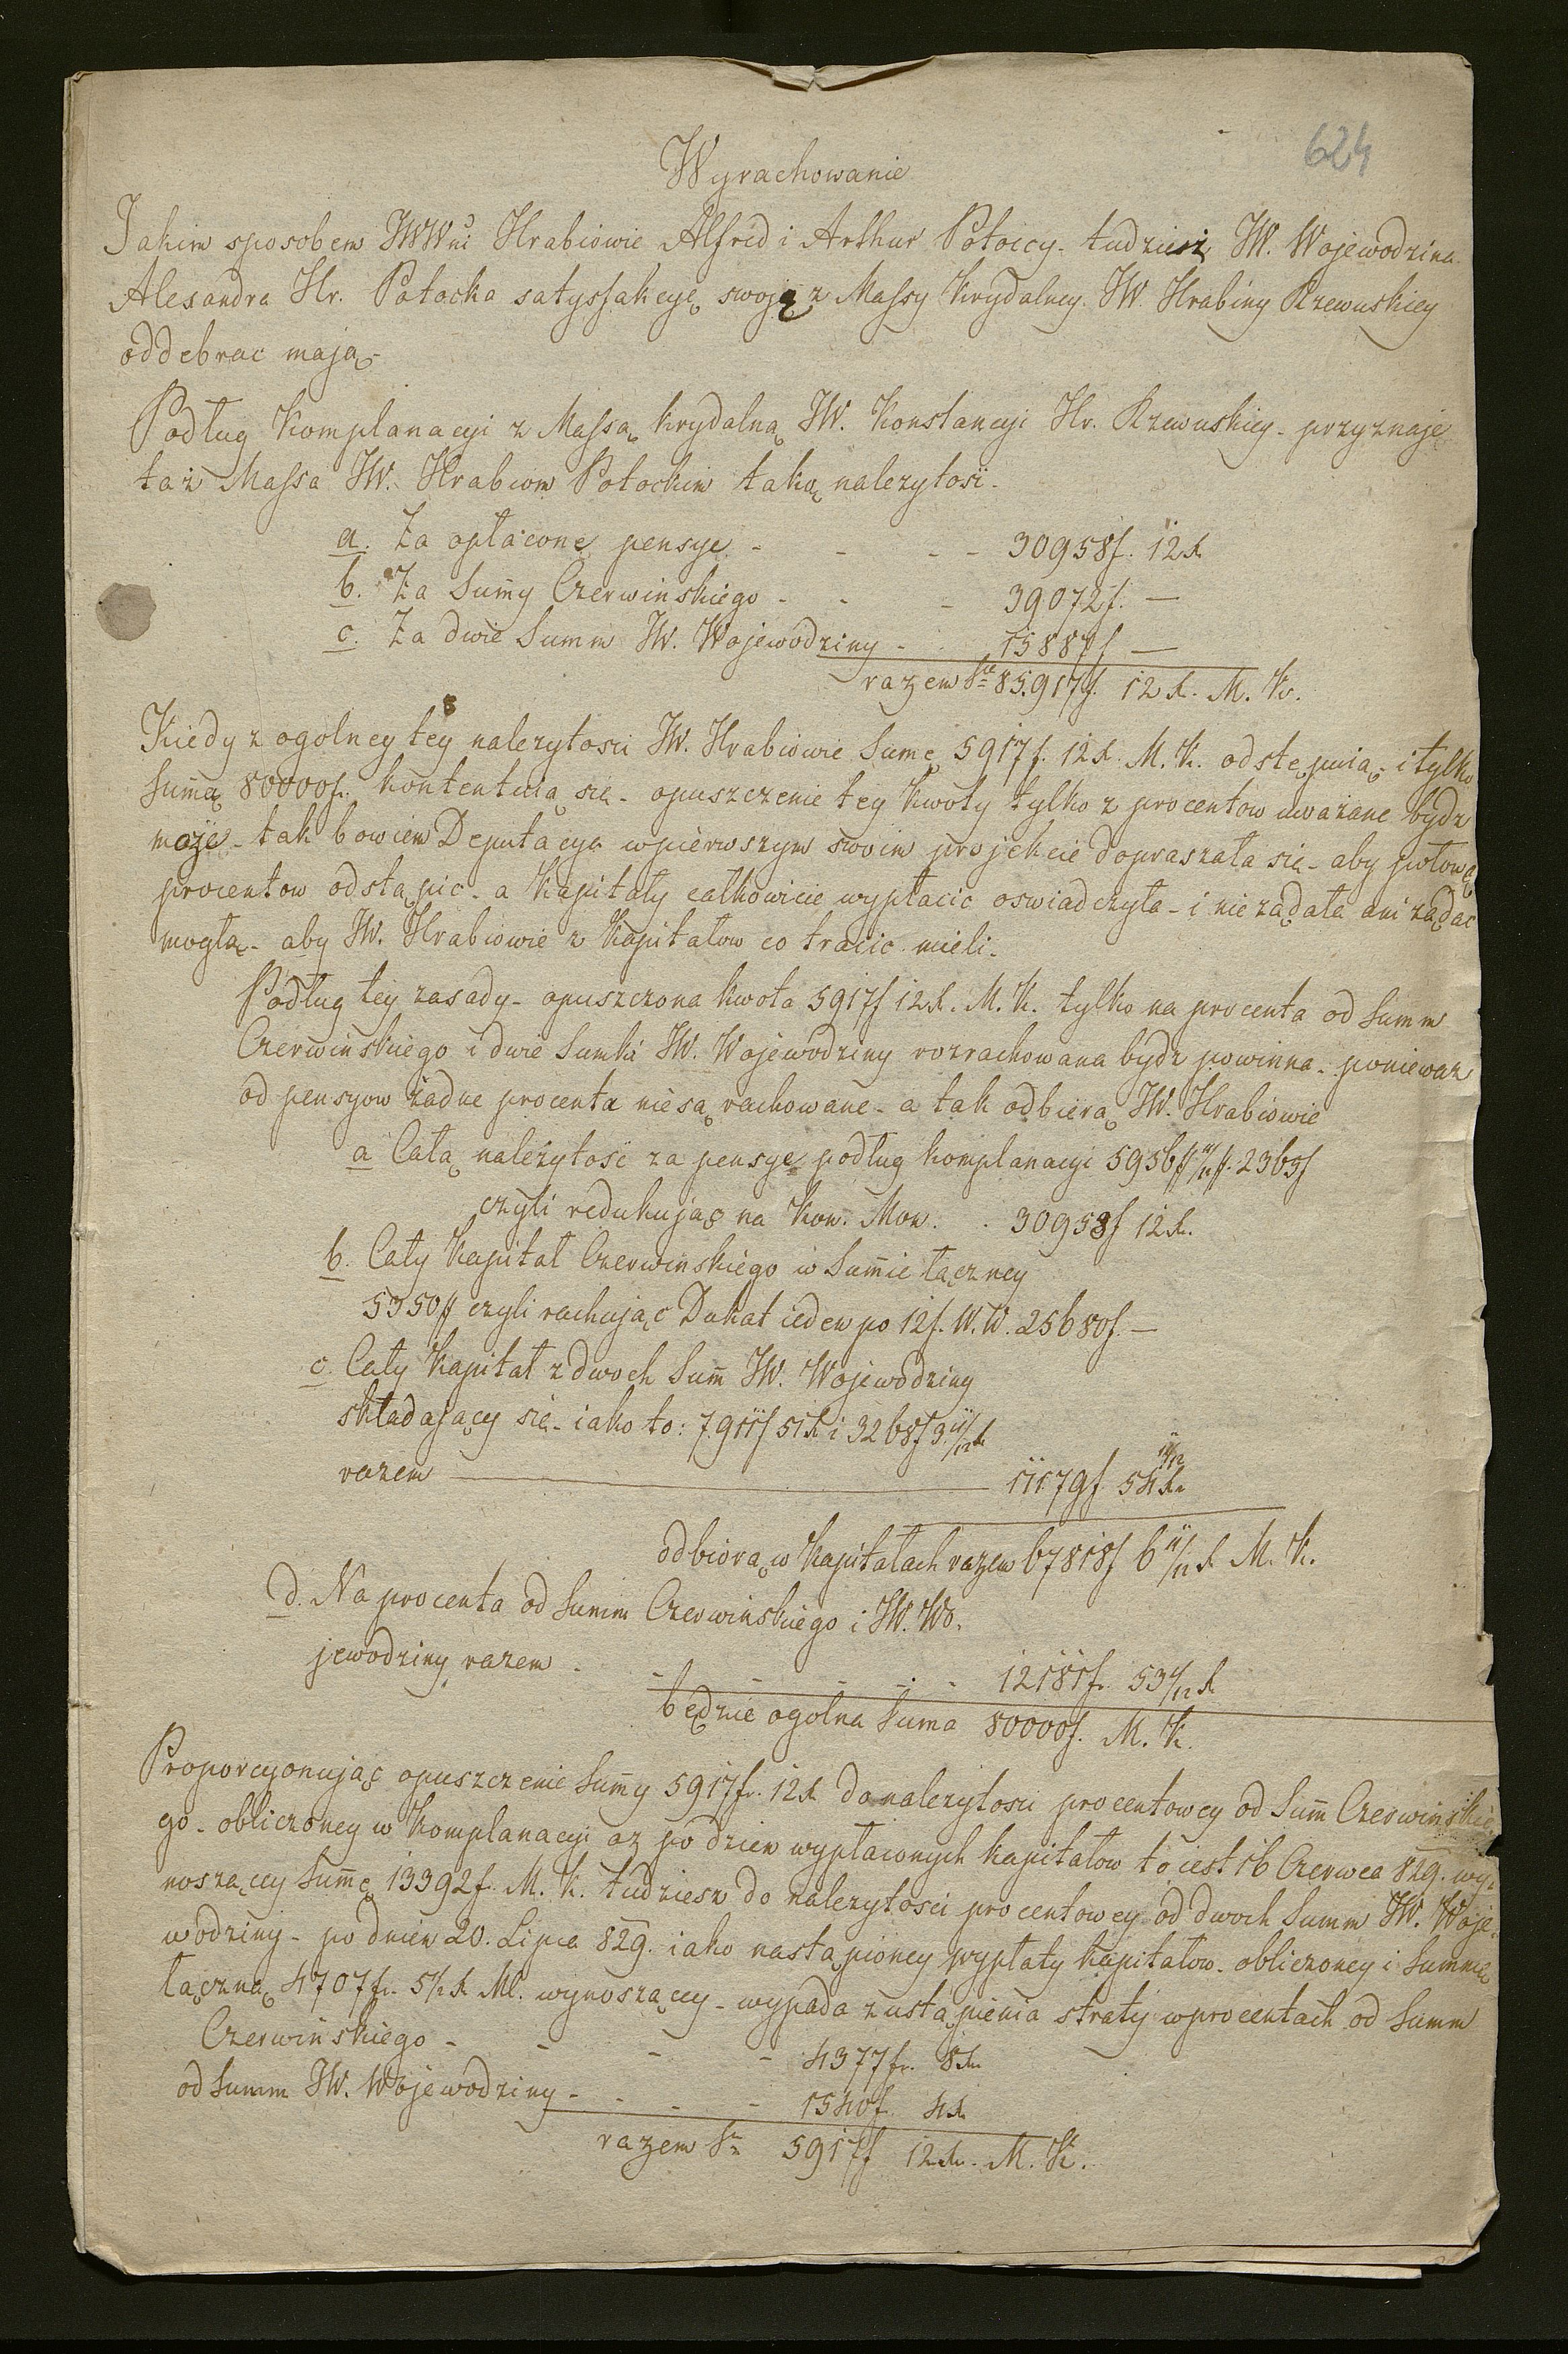 624
Wyrachowanie
Jakim sposobem JWWni Hrabiowie Alfred i Arthur Potoccy - tudziesz JW. Wojewodzina
Alexandra Hr. Potocka satysfakcyę swoję z Massy Krydalney JW. Hrabiny Rzewuskiey
oddebrac mają -
Podług Komplanacyi z Massą krydalną JW. Konstancyi Hr. Rzewuskiey - przyznaje
taż Massa JW. Hrabiom Potockim taką nalezytość -
a. Za opłacone pensye - - - - 30958f. 12x
b. Za Sum̄y Czerwinskiego - - - 39072f. —
c. Za dwie Summ JW. Wojewodziny - - 15887f —
razem Sᵃ 85917f. 12x. M. K.
Kiedy z ogolney tey nalezytosci JW. Hrabiowie Sumę 5917f. 12x. M. K. odstępuią - i tylko
Sum̄ą 80000f. kontentuią się - opuszczenie tey Kwoty tylko z procentow uważane bydz
może - tak bowiem Deputacya w pierwszym swoim projekcie dopraszała się - aby połowę
procentow odstąpic - a Kapitały całkowicie wypłacic oswiadczyła - i nie ząd̨ała ani ządac
mogła - aby JW. Hrabiowie z Kapitałow co tracic mieli -
Podług tey zasady - opuszczona kwota 5917f 12x. M. K. tylko na procenta od Summ
Czerwinskiego i dwie Sumki JW. Wojewodziny rozrachowana bydz powinna - poniewaz
od pensyow żadne procenta nie są rachowane - a tak odbierą JW. Hrabiowie
a Całą należytość za pensye podług komplanacyi 5956# 2365f
czyli redukując na Kon. Mon. - 30958f 12x.
b. Cały Kapitał Czerwinskiego w Sum̄ie łączney
5350# czyli rachując Dukat ieden po 12f. W. W. 25680f. —
c. Cały Kapitał z dwoch Sum̄ JW. Wojewodziny
składający się - iako to: 7911f 51x i 3268f 3 11/12x
razem — 11179f 54 11/12x
odbiorą w Kapitałach razem 67818f 6 11/12x M. K.
d. Na procenta od Summ Czerwinskiego i JW. Wo-
jewodziny razem - - - - - 12181f. 53 1/12x
będzie ogolna Suma 80000f. M. K.
Proporcyonując opuszczenie Sum̄y 5917f. 12x do nalezytosci procentowey od Sum̄ Czerwinskie-
go - obliczoney w Komplanacyi az po dzien wypłaconych Kapitałow to iest 16 Czerwca 829. wy-
noszącey Sum̄ę 13392f. M. K. tudziesz do nalezytosci procentowey od dwoch Summ JW. Woje-
wodziny - po dzien 20. Lipca 829. iako nastąpioney wypłaty Kapitałow - obliczoney i Summę
łączną 4707f. 5½x M. wynoszącey - wypada z ustąpienia straty w procentach od Summ
Czerwinskiego - - - - 4377f. 8x.
od Summ JW. Wojewodziny - - - - 1540f 4x
razem Sᵃ 5917f 12x. M. K.